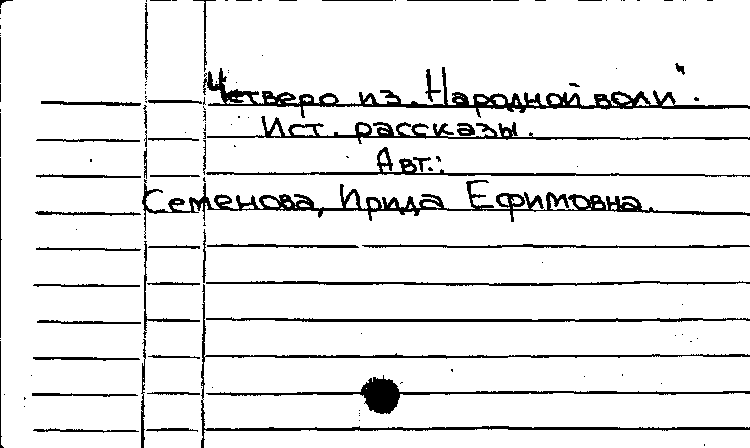 "Четверо из. Народной воли".
Ист. рассказы.
Авт.:
Семенова, Ирида Ефимовна.